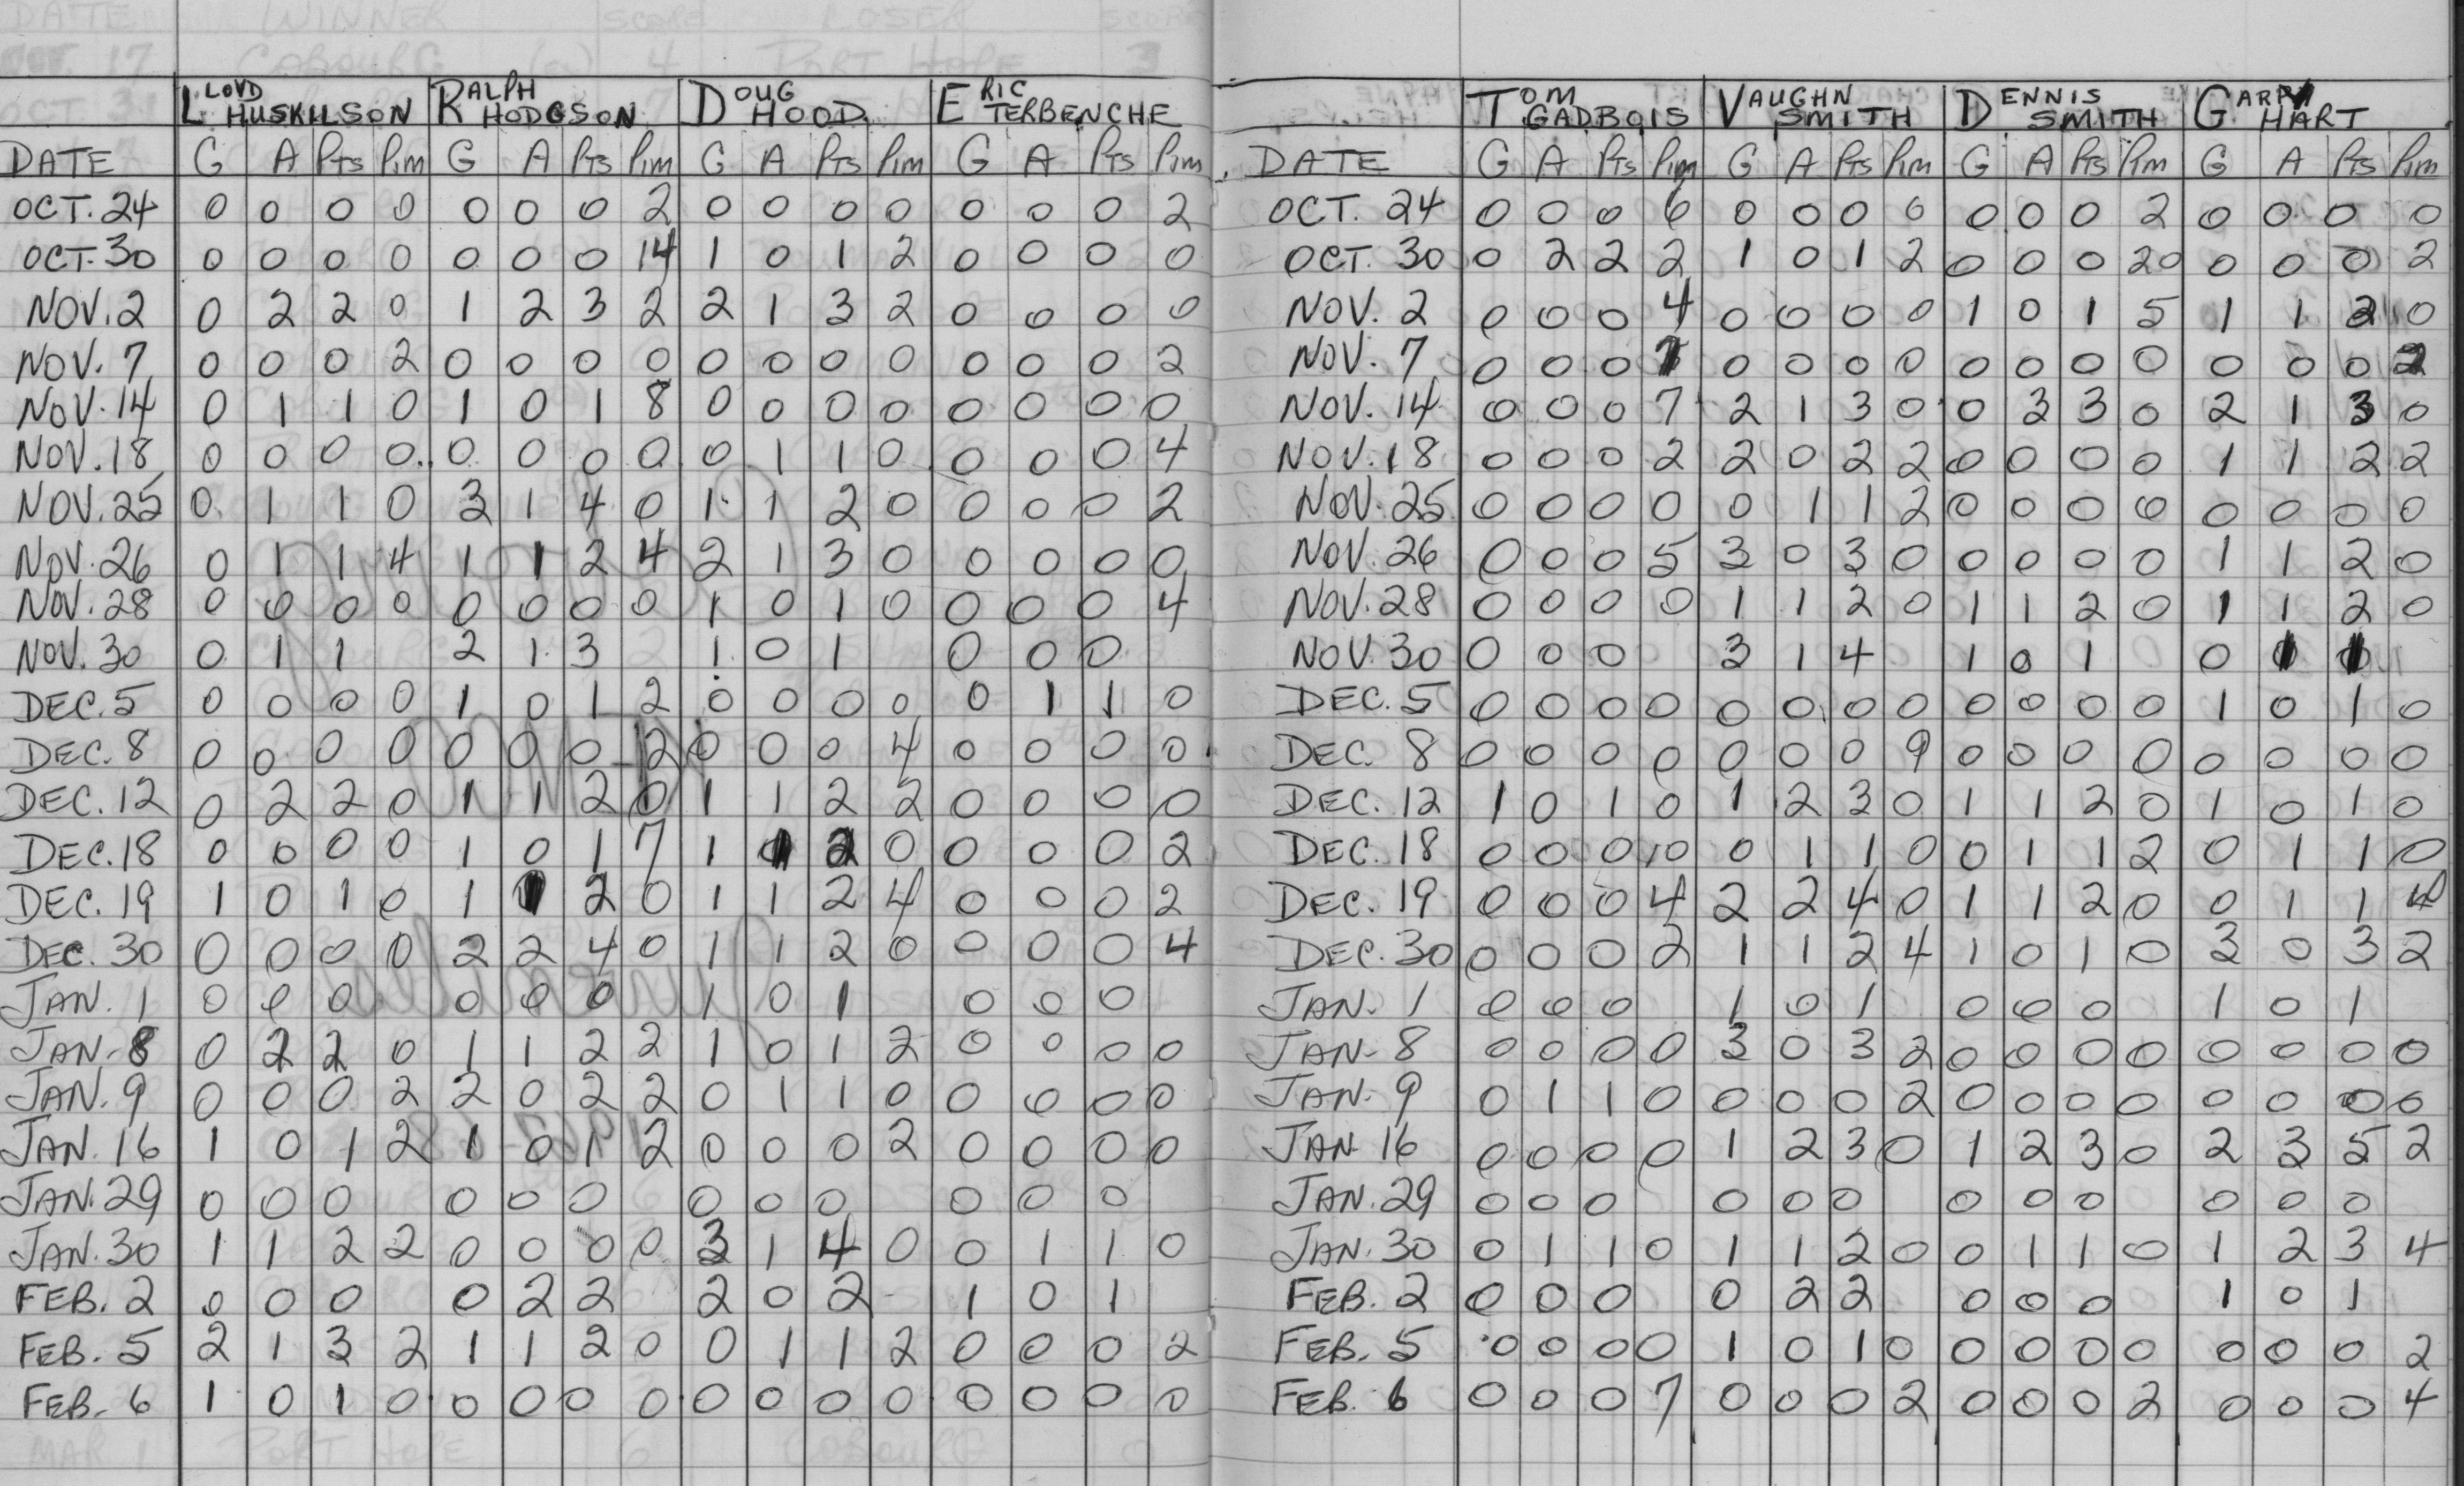 LLOYD HUSKILSON RALPH HODGSON DOUG HOOD ERIC TERBENCHE
DATE G A Pts Pim G A Pts Pim G A Pts Pim G A Pts Pim
OCT. 24 0 0 0 0 0 0 0 2 0 0 0 0 0 0 0 2
OCT. 30 0 0 0 0 0 0 0 14 1 0 1 2 0 0 0 0
NOV. 2 0 2 2 0 1 2 3 2 2 1 3 2 0 0 0 0
NOV. 7 0 0 0 2 0 0 0 0 0 0 0 0 0 0 0 2
NOV. 14 0 1 1 0 1 0 1 8 0 0 0 0 0 0 0 0
NOV. 18 0 0 0 0 0 0 0 0 0 1 1 0 0 0 0 4
NOV. 25 0 1 1 0 3 1 4 0 1 1 2 0 0 0 0 2
NOV. 26 0 1 1 4 1 1 2 4 2 1 3 0 0 0 0 0
NOV. 28 0 0 0 0 0 0 0 0 1 0 1 0 0 0 0 4
NOV. 30 0 1 1 2 1 3 1 0 1 0 0 0
DEC. 5 0 0 0 0 1 0 1 2 0 0 0 0 0 1 1 0
DEC. 8 0 0 0 0 0 0 0 2 0 0 0 4 0 0 0 0
DEC. 12 0 2 2 0 1 1 2 0 1 1 2 2 0 0 0 0
DEC. 18 0 0 0 0 1 0 1 7 1 1 2 0 0 0 0 2
DEC. 19 1 0 1 0 1 1 2 0 1 1 2 4 0 0 0 2
DEC. 30 0 0 0 0 2 2 4 0 1 1 2 0 0 0 0 4
JAN. 1 0 0 0 0 0 0 1 0 1 0 0 0
JAN. 8 0 2 2 0 1 1 2 2 1 0 1 2 0 0 0 0
JAN. 9 0 0 0 2 2 0 2 2 0 1 1 0 0 0 0 0
JAN. 16 1 0 1 2 1 0 1 2 0 0 0 2 0 0 0 0
JAN. 29 0 0 0 0 0 0 0 0 0 0 0 0
JAN. 30 1 1 2 2 0 0 0 0 3 1 4 0 0 1 1 0
FEB. 2 0 0 0 0 2 2 2 0 2 1 0 1
FEB. 5 2 1 3 2 1 1 2 0 0 1 1 2 0 0 0 2
FEB. 6 1 0 1 0 0 0 0 0 0 0 0 0 0 0 0 0
TOM GADBOIS VAUGHN SMITH DENNIS SMITH GARRY HART
DATE G A Pts Pim G A Pts Pim G A Pts Pim G A Pts Pim
OCT. 24 0 0 0 6 0 0 0 0 0 0 0 2 0 0 0 0
OCT. 30 0 2 2 2 1 0 1 2 0 0 0 20 0 0 0 2
NOV. 2 0 0 0 4 0 0 0 0 1 0 1 5 1 1 2 0
NOV. 7 0 0 0 0 0 0 0 0 0 0 0 0 0 0 2
NOV. 14 0 0 0 7 2 1 3 0 0 3 3 0 2 1 3 0
NOV. 18 0 0 0 2 2 0 2 2 0 0 0 0 1 1 2 2
NOV. 25 0 0 0 0 0 1 1 2 0 0 0 0 0 0 0 0
NOV. 26 0 0 0 5 3 0 3 0 0 0 0 0 1 1 2 0
NOV. 28 0 0 0 0 1 1 2 0 1 1 2 0 1 1 2 0
NOV. 30 0 0 0 3 1 4 1 0 1 0
DEC. 5 0 0 0 0 0 0 0 0 0 0 0 0 1 0 1 0
DEC. 8 0 0 0 0 0 0 0 9 0 0 0 0 0 0 0 0
DEC. 12 1 0 1 0 1 2 3 0 1 1 2 0 1 0 1 0
DEC. 18 0 0 0 10 0 1 1 0 0 1 1 2 0 1 1 0
DEC. 19 0 0 0 4 2 2 4 0 1 1 2 0 0 1 1
DEC. 30 0 0 0 2 1 1 2 4 1 0 1 0 3 0 3 2
JAN. 1 0 0 0 1 0 1 0 0 0 1 0 1
JAN. 8 0 0 0 0 3 0 3 2 0 0 0 0 0 0 0 0
JAN. 9 0 1 1 0 0 0 0 2 0 0 0 0 0 0 0 0
JAN 16 0 0 0 0 1 2 3 0 1 2 3 0 2 3 5 2
JAN. 29 0 0 0 0 0 0 0 0 0 0 0 0
JAN. 30 0 1 1 0 1 1 2 0 0 1 1 0 1 2 3 4
FEB. 2 0 0 0 0 2 2 0 0 0 1 0 1
FEB. 5 0 0 0 0 1 0 1 0 0 0 0 0 0 0 0 2
FEB. 6 0 0 0 7 0 0 0 2 0 0 0 2 0 0 0 4